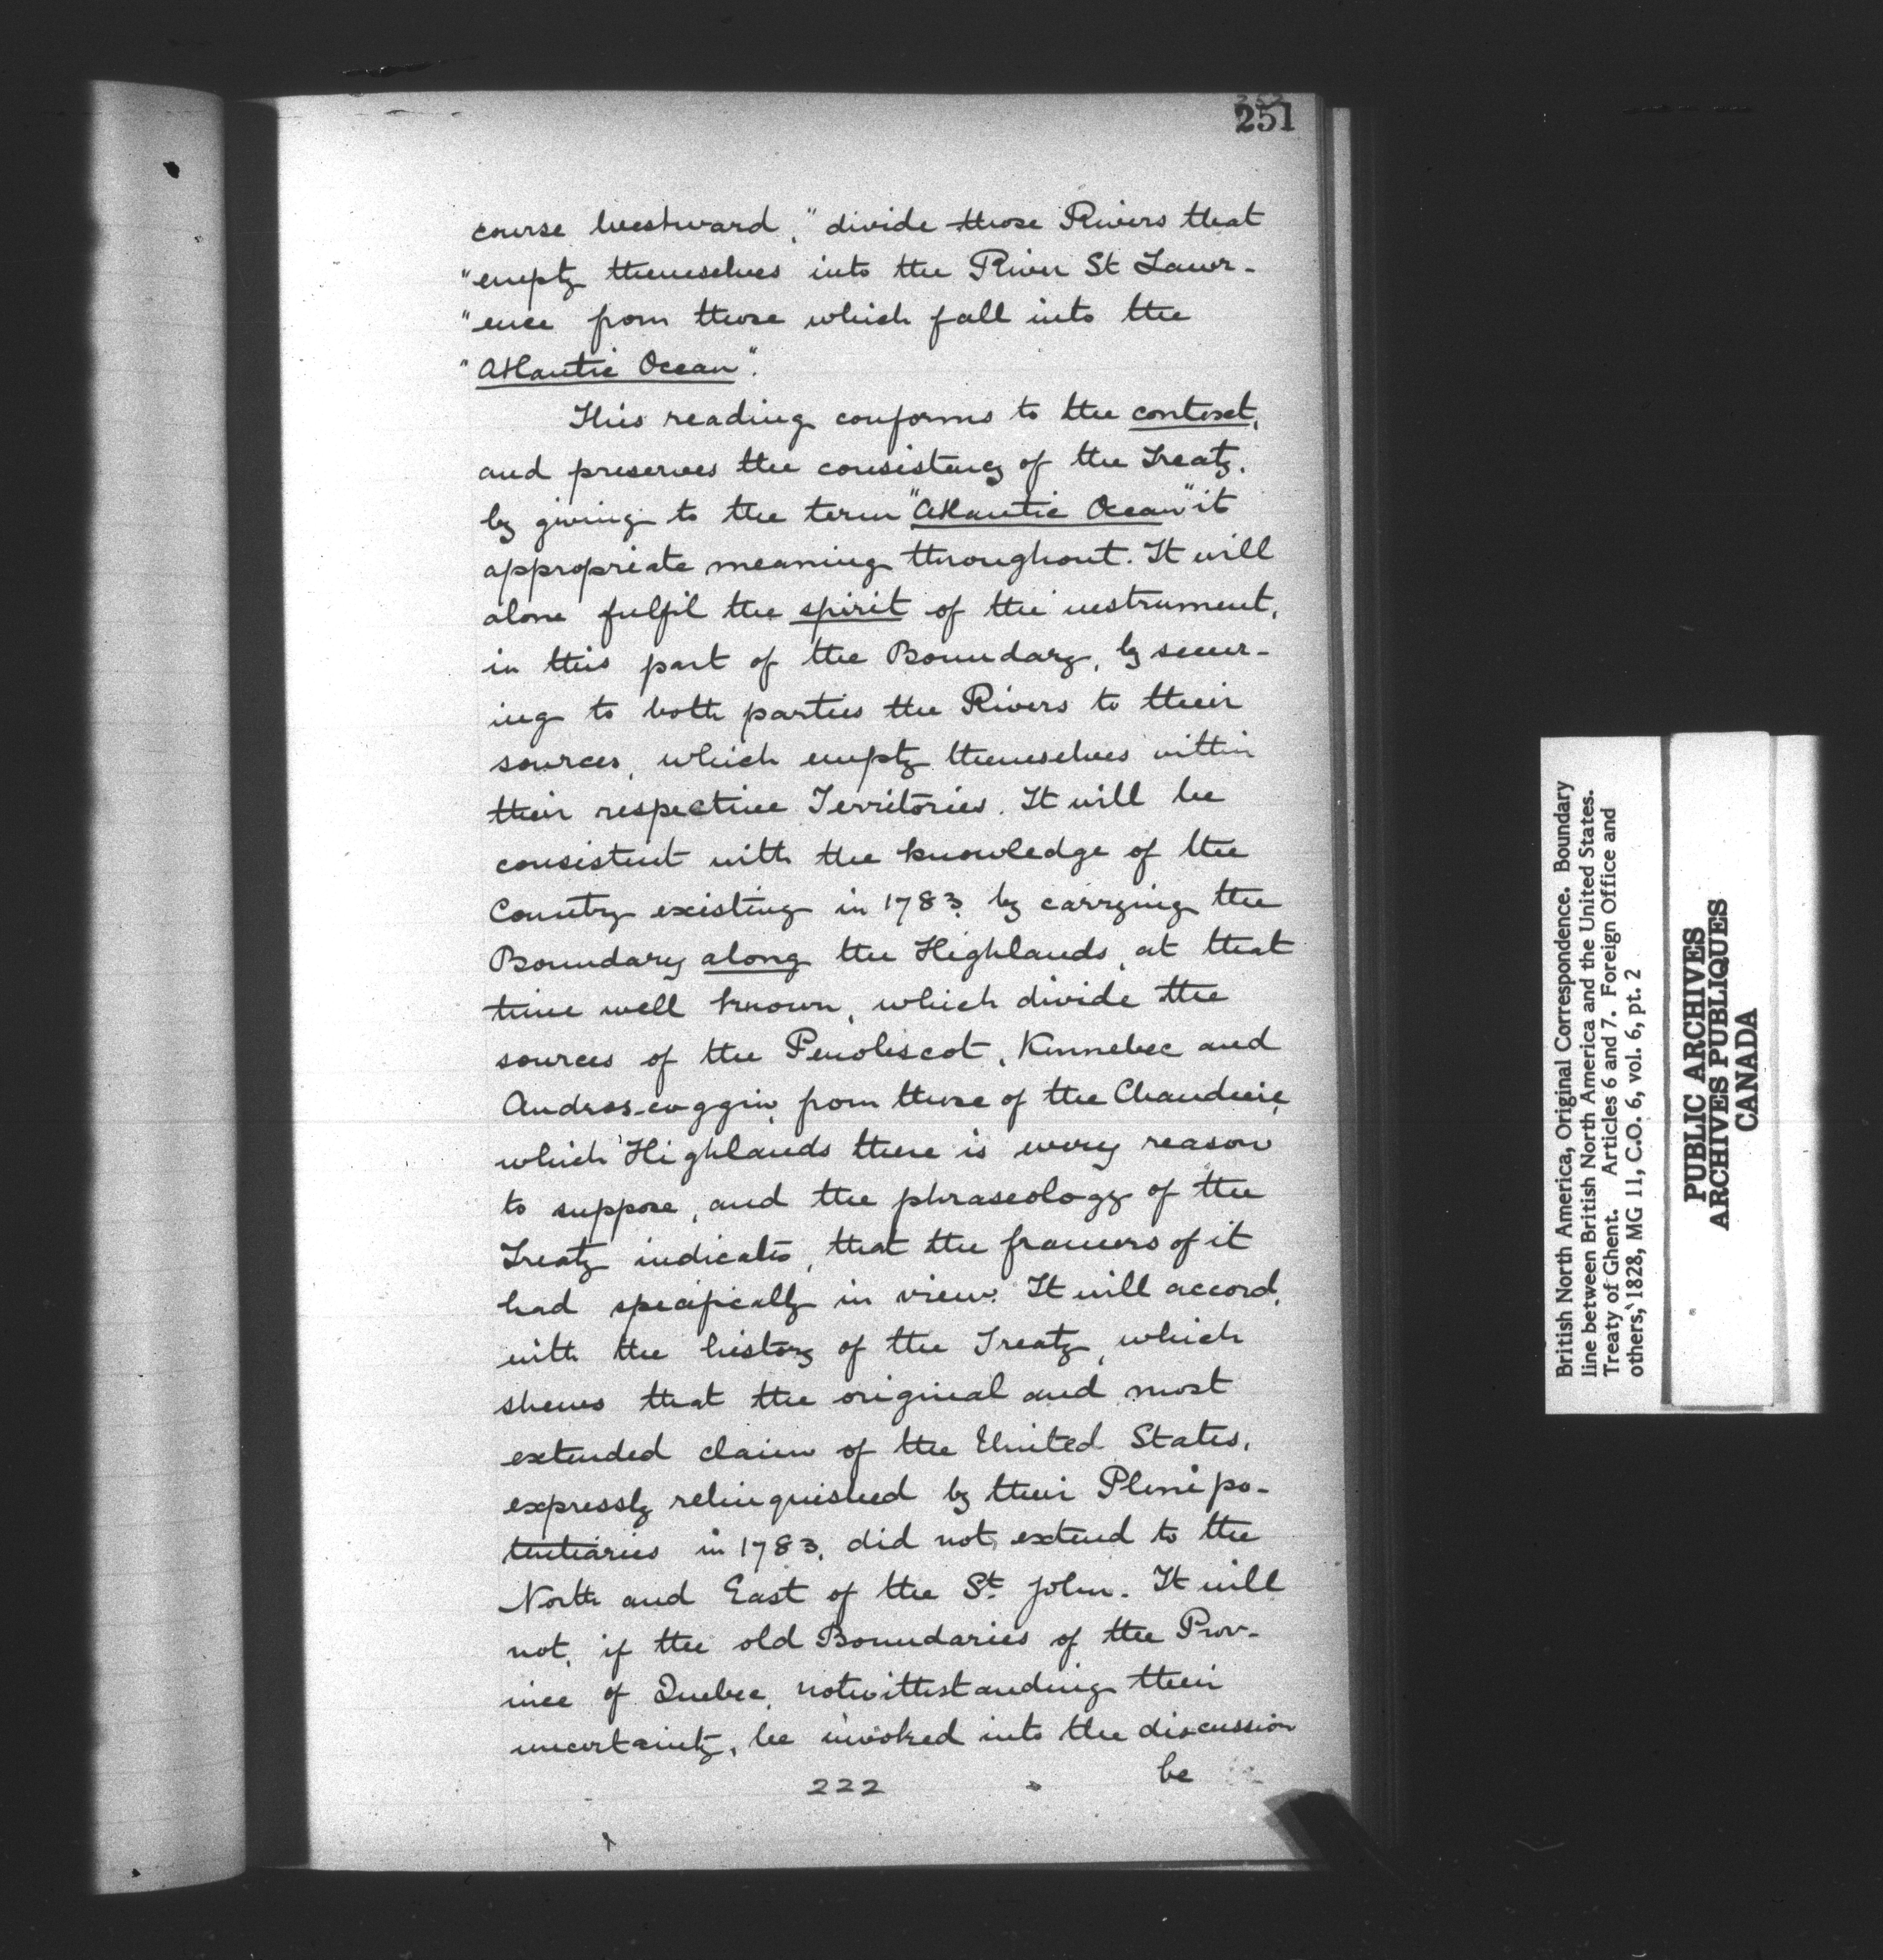 251
course Westward, "divide those Rivers that
"empty themselves into the River St Lawr-
"ence from those which fall into the
"Atlantic Ocean".
This reading conforms to the context,
and preserves the consistency of the Treaty,
by giving to the term "Atlantic Ocean" it
appropriate meaning throughout. It will
alone fulfil the spirit of the instrument,
in this part of the Boundary, by secur-
ing to both parties the Rivers to their
sources, which empty themselves within
their respective Territories. It will be
consistent with the knowledge of the
Country existing in 1783 by carrying the
Boundary along the Highlands, at that
time well known, which divide the
sources of the Penobscot, Kennebec and
Andros-coggin from those of the Chaudière,
which Highlands there is every reason
to suppose, and the phraseology of the
Treaty indicates, that the framers of it
had specifically in view. It will accord,
with the history of the Treaty, which
shews that the original and most
extended claim of the United States,
expressly relinquished by their Plenipo-
tentiaries in 1783, did not extend to the
North and East of the St. John. It will
not, if the old Boundaries of the Prov-
ince of Quebec, notwithstanding their
uncertainty, be invoked into the discussion
be
222
British North America, Original Correspondence. Boundary
line between British North America and the United States.
Treaty of Ghent. Articles 6 and 7. Foreign Office and
others, 1828, MG 11, C.O. 6, vol. 6, pt. 2
PUBLIC ARCHIVES
ARCHIVES PUBLIQUES
CANADA